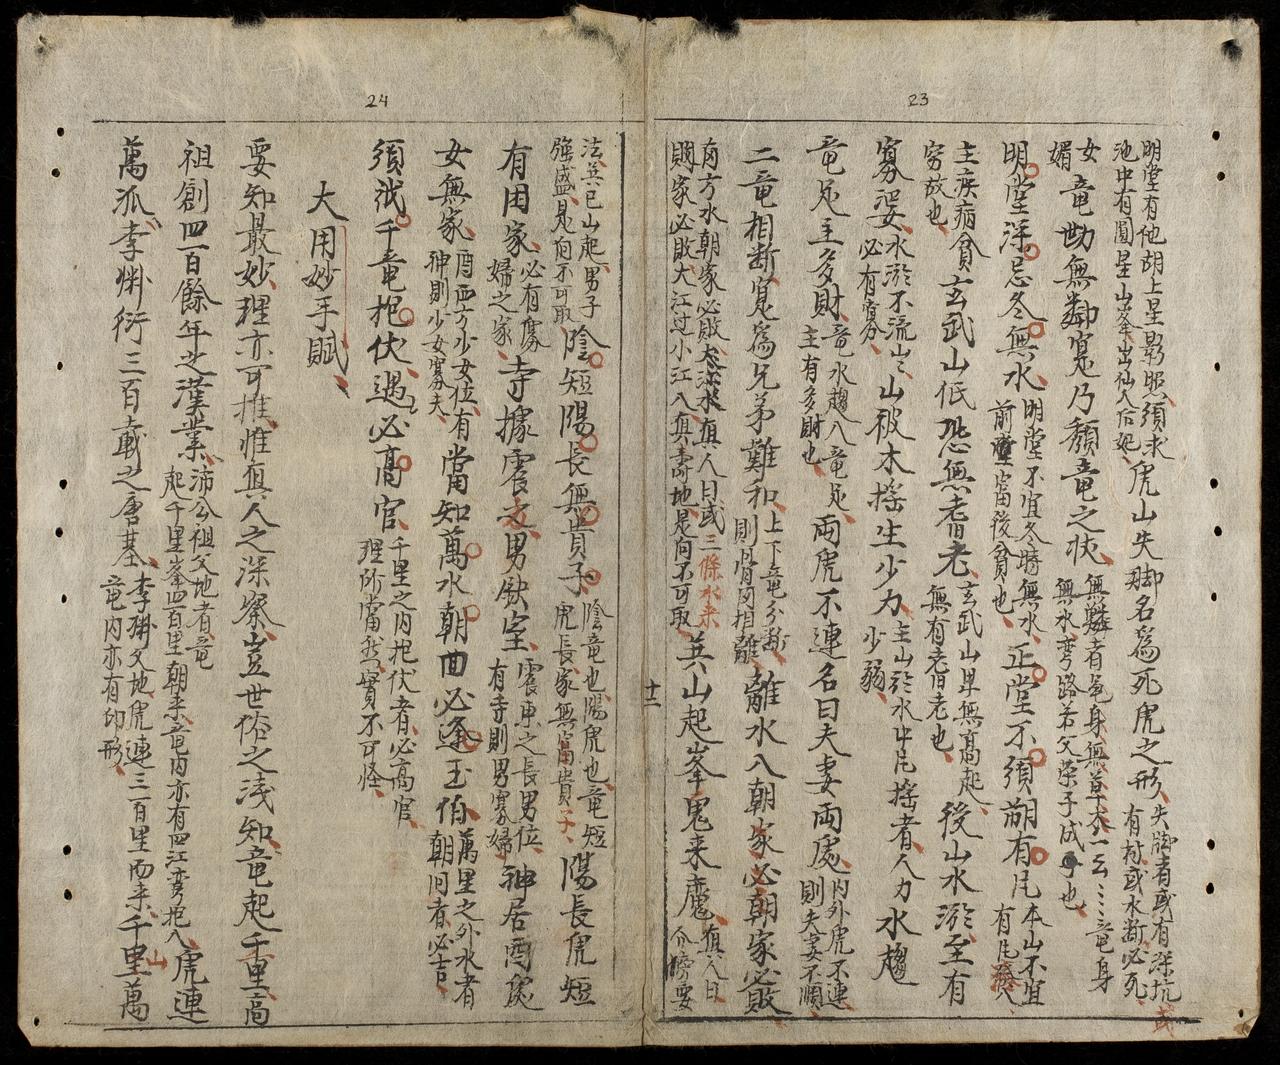 23
明堂有他胡上星影照須求
池中有圓星山峯出仙人后妃
虎山失脚名爲死虎之形
失脚者或有深坑或
有村或水斷必死
女
婿
竜㘨無鄰寬乃頹竜之状
無鄰者竜身無草木一云〻〻竜身
無水弯路若父荣子成子也
明堂浮忌冬無水
明堂不宜冬時無水
前堂富後貧也
正堂不須朔有凡
本山不宜
有凡發八
主疾病貧
穷故也
玄武山低恐無耆老
玄武山卑無高起
無有耆老也
後山水㴨至有
寡婆
水㴨不流山〻
必有寡
山被木搖生少力
主山於水中凡搖者人力
少弱
水趨
竜足主多財
竜水趨入竜足
主有多財也
両虎不連名曰夫妻両處
内外虎不連
則夫妻不順
二竜相斷寬爲兄弟難和
上下竜分斷
則骨肉相離
離水入朝家必朝家必敗
有方水朝家必敗大法水真人曰或三條水来
國家必敗大江过小江入真壽地是向不可取
異山起峯鬼来魔
真人曰
介傍要
十二
24
法異巳山起男子
強盛是向不可取
陰短陽長無貴子
陰竜也陽虎也竜短
虎長家無富貴子
陽長虎短
有困家
必有寡
婦之家
寺據震之男缺室
震東之長男位
有寺則男寡婦
神居酉處
女無家
酉西方少女位
神則少女寡夫
有當知萬水朝回必逢玉伯
萬里之外水者
朝回者必吉
須洮千竜抱伏遇必高官
千里之内抱伏者必高官
理所當然實不可怪
大用妙手賦
要知最妙理亦可推惟真人之深察豈世俗之浅知竜起千里高
祖創四百餘年之漢業
沛公祖父地者竜
起千里峯四百里朝来竜内亦有四江弯抱入
虎連
萬狐李渊衍三百載之唐基
李渊父地虎連三百里而来
竜内亦有印形
千里山萬